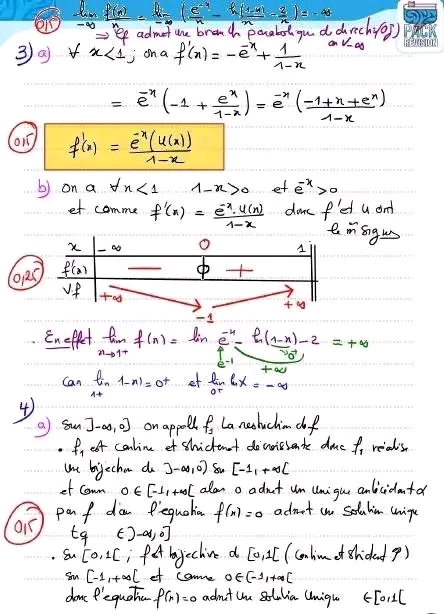 0,5 lim f(x)/x = lim (e^-x/x - ln(1-x)/x - 2/x) = -∞
-∞ -∞
⇒ Cf admet une branche parabolique de direction (Oy) PACK
au V-∞ REVISION
3) a) ∀ x<1 ; on a f'(x) = -e^-x + 1/(1-x)
= e^-x (-1 + e^x/(1-x)) = e^-x ((-1+x+e^x)/(1-x))
0,5 f'(x) = e^-x (u(x))/(1-x)
b) on a ∀x<1 1-x>0 et e^-x>0
et comme f'(x) = e^-x. u(x)/(1-x) donc f' et u ont
le m̂ signe
x -∞ 0 1
0,25 f'(x) — 0 +
Vf +∞ -1 +∞
. En effet lim f(x) = lim e^-x - ln(1-x) - 2 = +∞
x→1+ e^-1 0+ +∞
Car lim (1-x) = 0+ et lim ln x = -∞
1+ 0+
4)
a) Sur ]-∞,0] on appelle f1 la restriction de f
• f1 est continue et strictement décroissante donc f1 réalise
une bijection de ]-∞,0] sur [-1,+∞[
et comme 0 ∈ [-1,+∞[ alors 0 admet un unique antécédent α
0,5 par f d'où l'équation f(x)=0 admet une solution unique
tq ∈ ]-∞,0]
• Sur [0,1[ ; f est bijective de [0,1[ (continue et strictement ↗)
sur [-1,+∞[ et comme 0∈[-1,+∞[
donc l'équation f(x)=0 admet une solution unique ∈ [0,1[